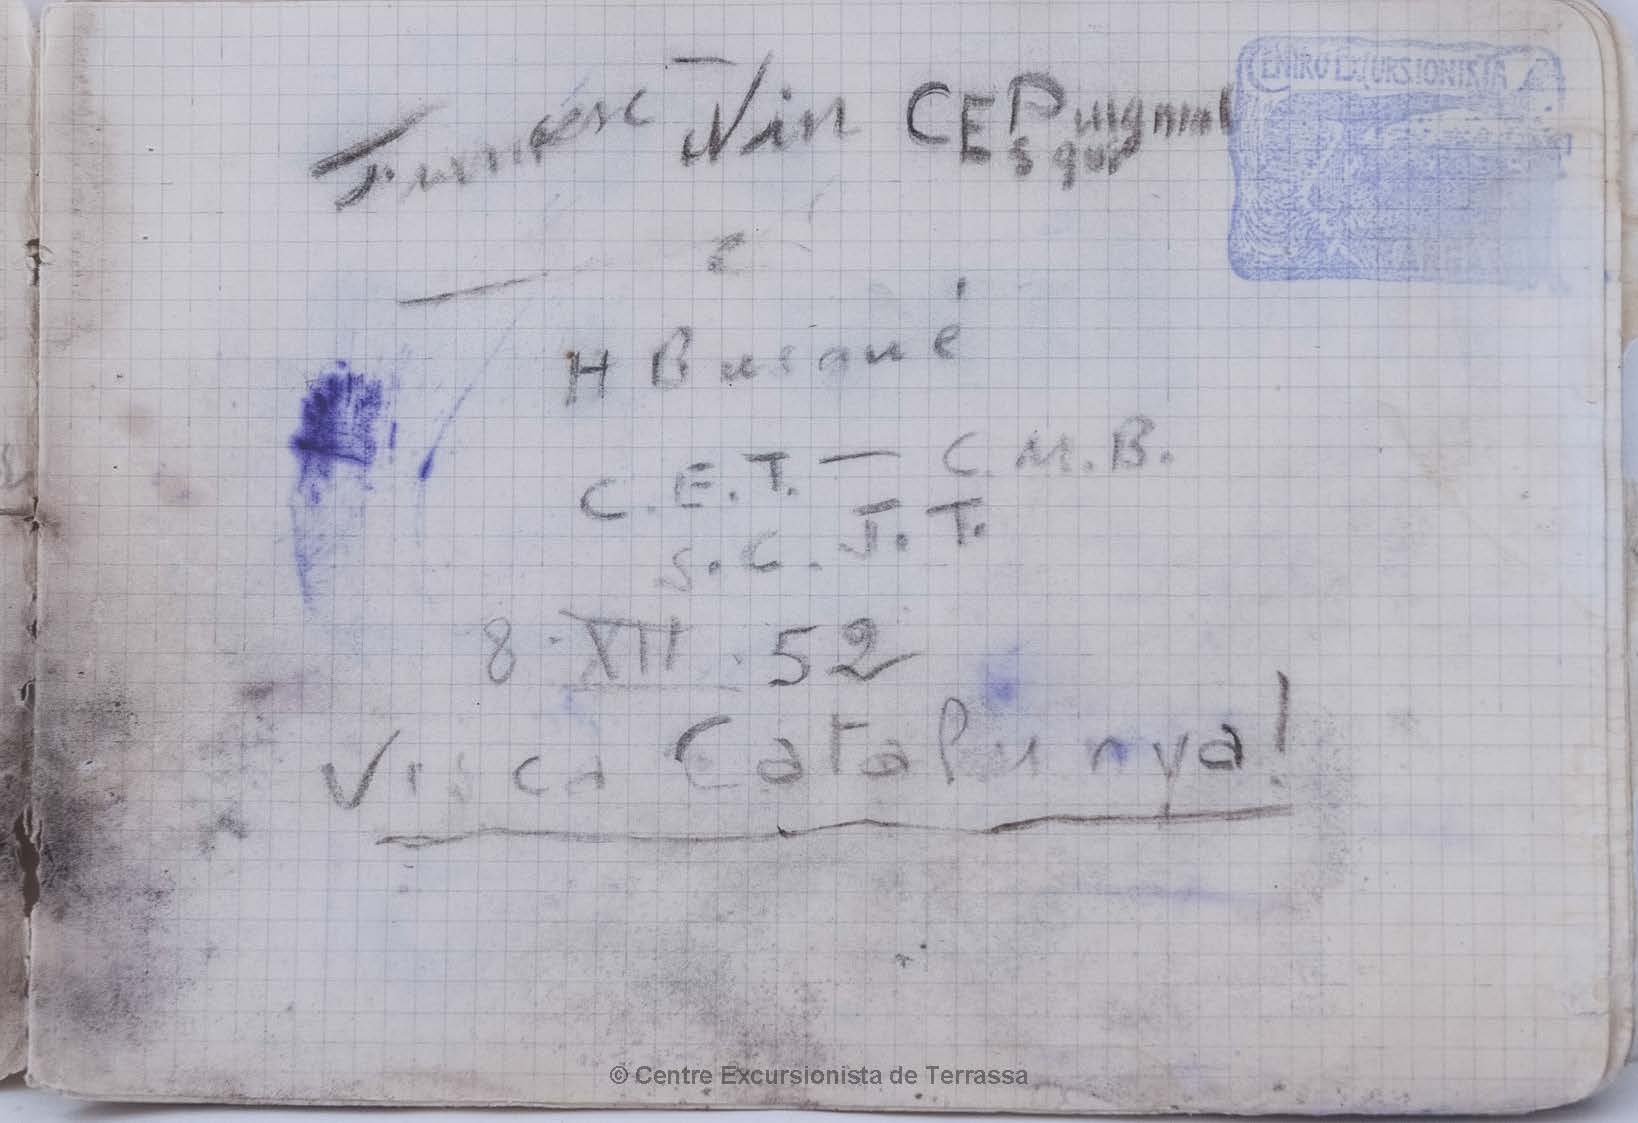 Francesc Nin CE Puigmal
CENTRO EXCURSIONISTA
H Busqué
C.E.T. — C.M.B.
S.C.J.T.
8·XII·52
Visca Catalunya!
© Centre Excursionista de Terrassa